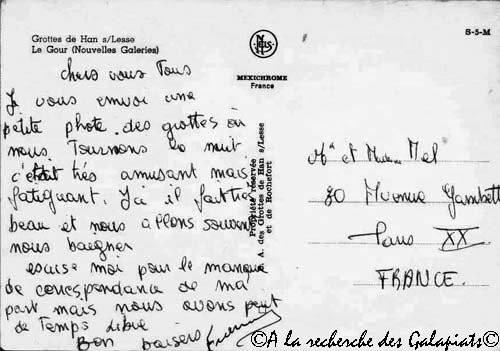 Grottes de Han s/Lesse
Le Gour (Nouvelles Galeries)
NELS
MEXICHROME
France
S-5-M
chers vous Tous
Je vous envoi une
petite photo des grottes où
nous Tournons la nuit
c'était très amusant mais
fatiguant. Ici il fait très
beau et nous allons souvent
nous baigner
escuse moi pour le manque
de correspondance de ma
part mais nous avons peut
de Temps libre
Bon baisers
Propriété réservée
A. des Grottes de Han s/Lesse
et de Rochefort
Mr et Mel
80 Avenue Gambetta
Paris XX
FRANCE.
©A la recherche des Galapiats©